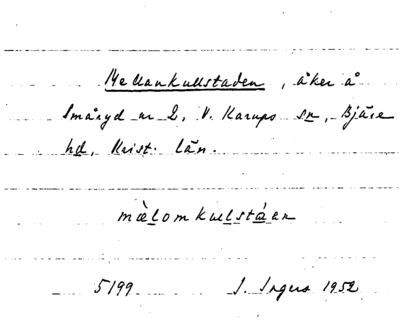 Mellankullstaden, åker å
Småryd nr 2, V. Karups sn, Bjäre
hd, Krist. län.
mèlomkullstáen
5199 I. Ingers 1952